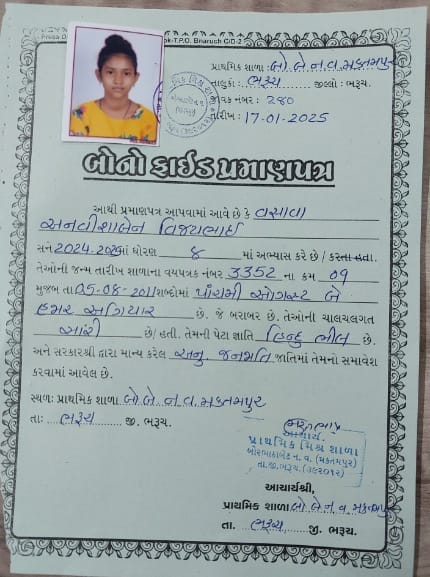 Bharuch C/D-2
પ્રાથમિક શાળા : બો.બે.ન.વ.મક્તમપુર
તાલુકા : ભરૂચ જીલ્લો : ભરૂચ.
જાવક નંબર : ૨૪૦
તારીખ : 17-01-2025
બોનોફાઈડ પ્રમાણપત્ર
આથી પ્રમાણપત્ર આપવામાં આવે છે કે વસાવા
વિજયભાઈ
સને 2024- માં ધોરણ ૪ માં અભ્યાસ કરે છે / કરતા હતા.
તેઓની જન્મ તારીખ શાળાના વયપત્રક નંબર 3352 ના ક્રમ 09
મુજબ તા. 05-08-2011 શબ્દોમાં પાંચમી ઓગસ્ટ બે
હજાર અગિયાર છે. જે બરાબર છે. તેઓની ચાલચલગત
સારી છે/ હતી. તેમની પેટા જ્ઞાતિ હિન્દુ ભીલ છે.
અને સરકારશ્રી દ્વારા માન્ય કરેલ અનુ. જનજાતિ જાતિમાં તેમનો સમાવેશ
કરવામાં આવેલ છે.
સ્થળ: પ્રાથમિક શાળા બો.બે.ન.વ.મક્તમપુર
તા: ભરૂચ જી. ભરૂચ.
આચાર્ય
પ્રાથમિક મિશ્ર શાળા
બોરભાઠાબેટ ન. વ. (મક્તમપુર)
તા.જી.ભરૂચ.(૩૯૨૦૧૨)
આચાર્યશ્રી,
પ્રાથમિક શાળા બો.બે.ન.વ.મક્તમપુર
તા. ભરૂચ જી. ભરૂચ.